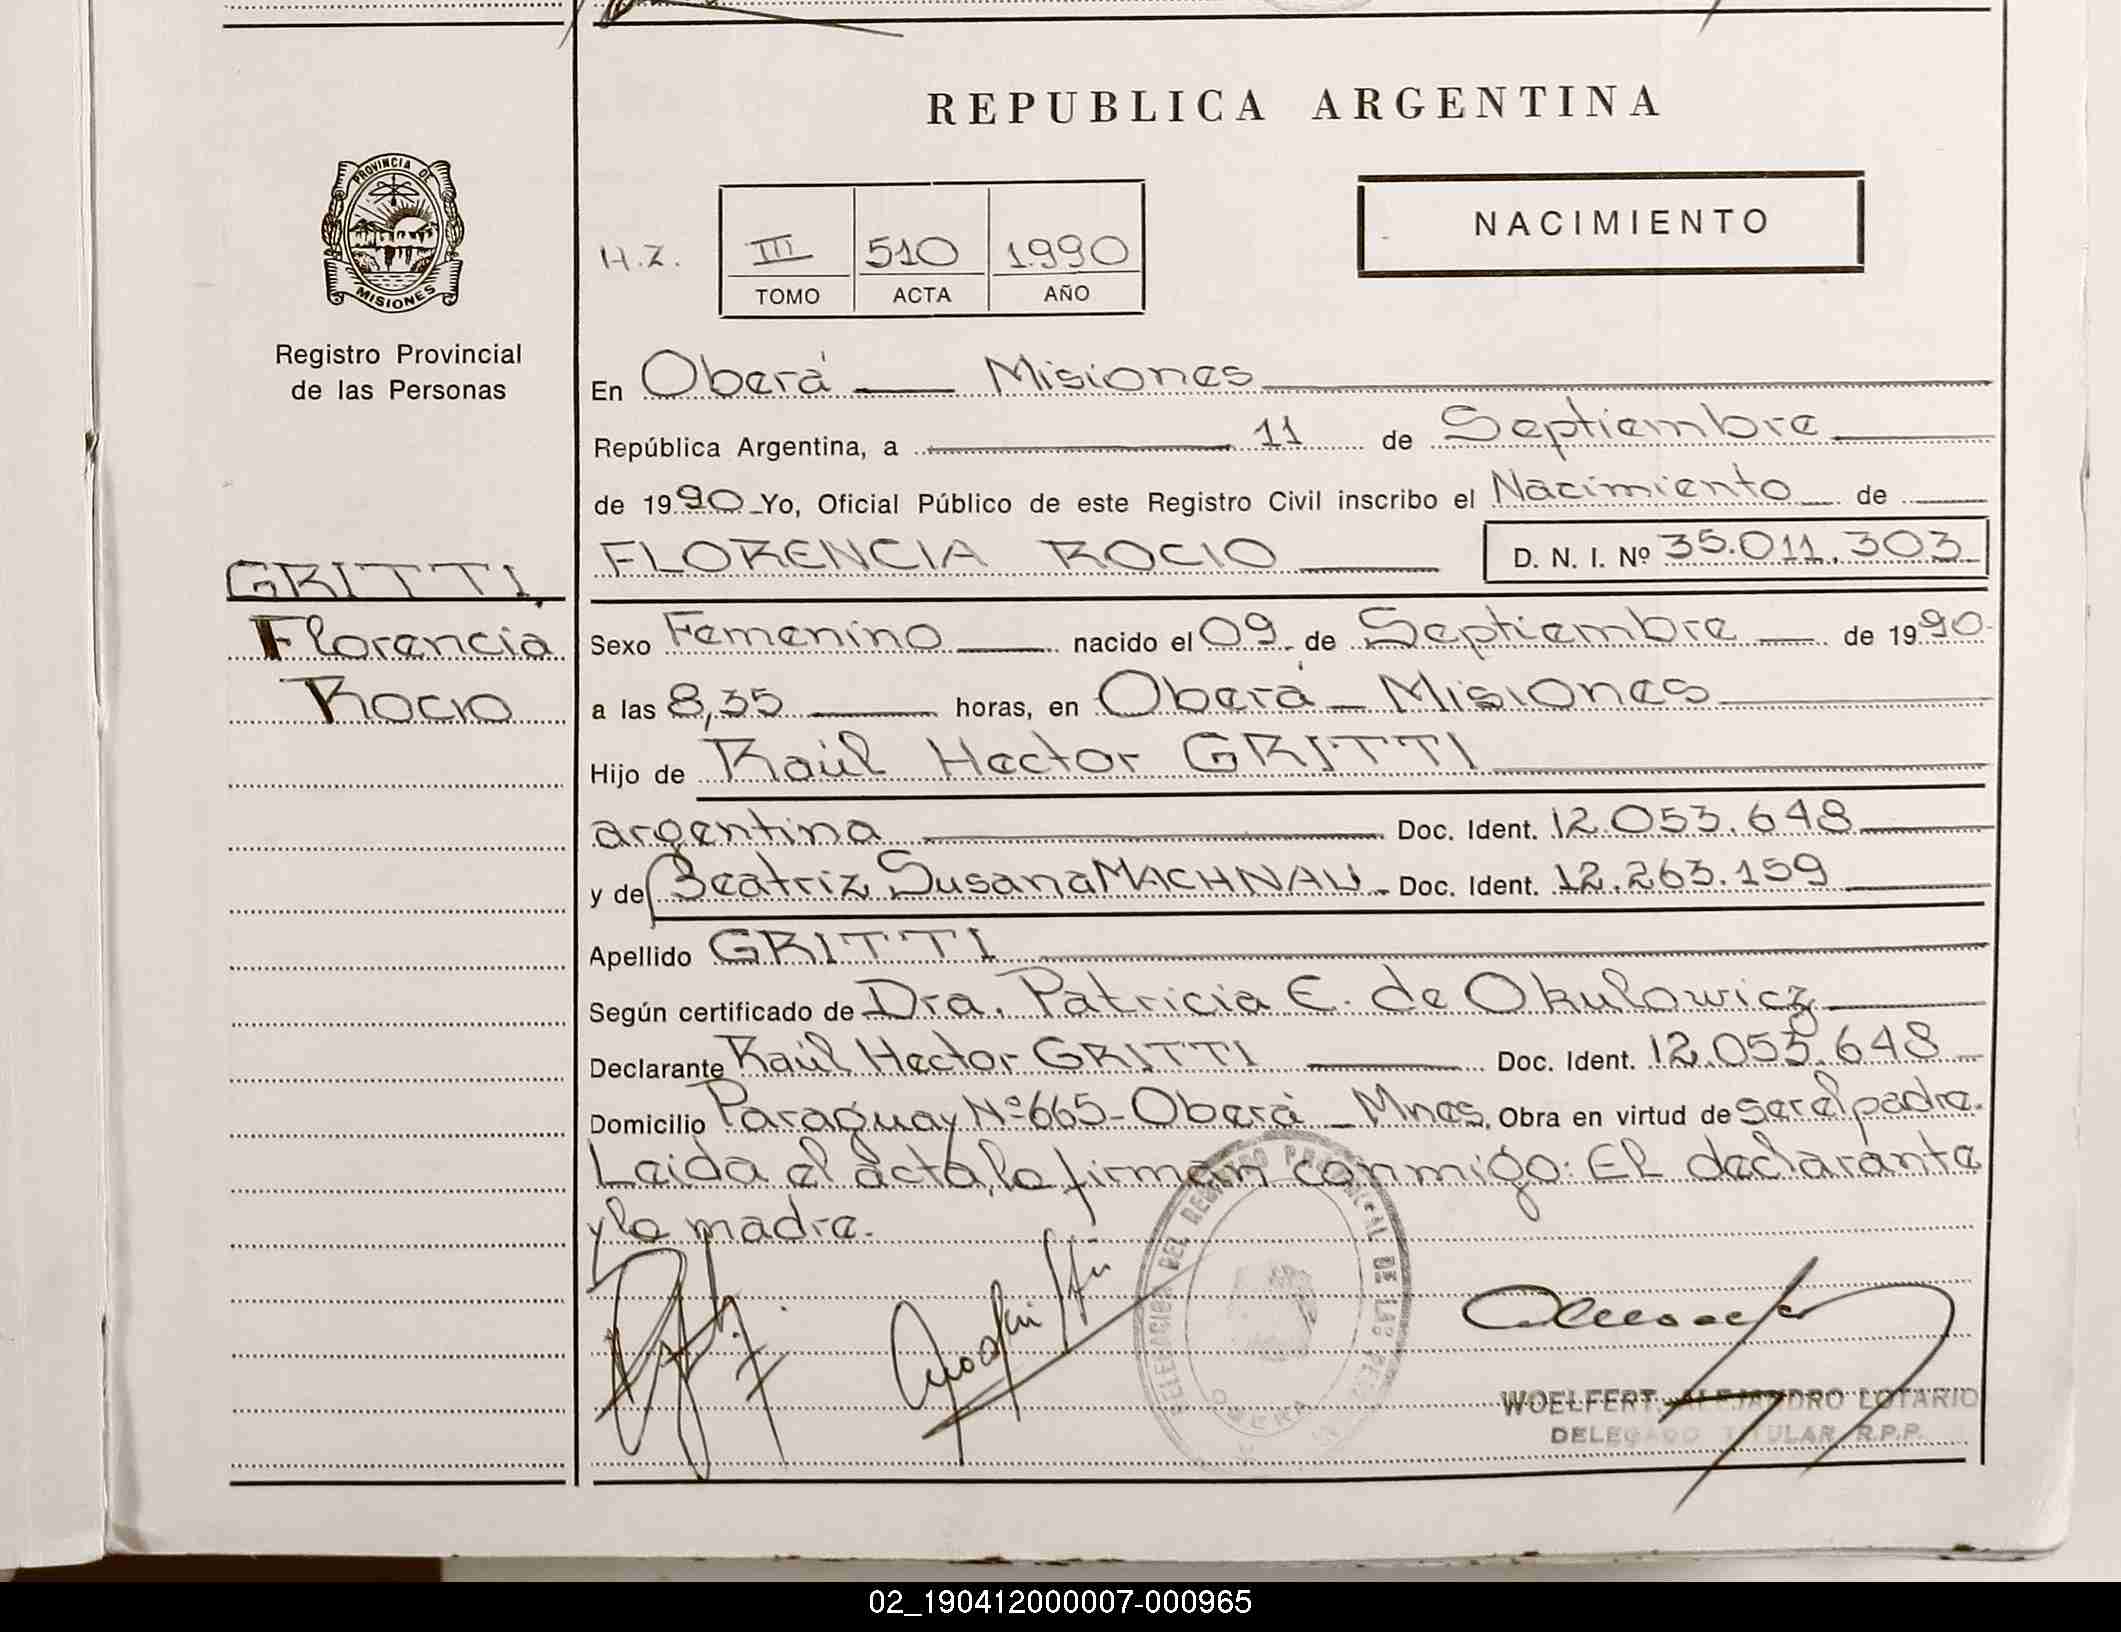 REPUBLICA ARGENTINA
PROVINCIA DE
MISIONES
Registro Provincial
de las Personas
H.Z. III 510 1990
TOMO ACTA AÑO
NACIMIENTO
En Oberá Misiones
República Argentina, a 11 de Septiembre
de 1990 Yo, Oficial Público de este Registro Civil inscribo el Nacimiento de
FLORENCIA ROCIO D. N. I. Nº 35.011.303
GRITTI,
Florencia
Rocio
Sexo Femenino nacido el 09 de Septiembre de 1990
a las 8,35 horas, en Oberá - Misiones
Hijo de Raúl Hector GRITTI
argentina Doc. Ident. 12.053.648
y de Beatriz Susana MACHNAU Doc. Ident. 12.263.159
Apellido GRITTI
Según certificado de Dra. Patricia E. de Okulowicz
Declarante Raúl Hector GRITTI Doc. Ident. 12.053.648
Domicilio Paraguay Nº 665 - Oberá - Mnes. Obra en virtud de ser el padre.
Leida el acta, la firman conmigo: El declarante
y la madre.
DELEGACION DEL REGISTRO PROVINCIAL DE LAS
OBERA
WOELFERT, ALEJANDRO LOTARIO
DELEGADO TITULAR R.P.P.
02_190412000007-000965